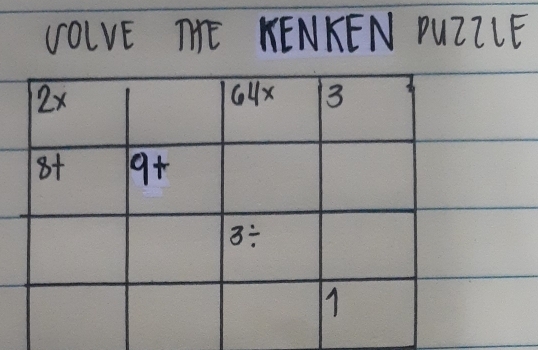 SOLVE THE KENKEN PUZZLE
2x 64x 3
8+ 9+
3÷
1